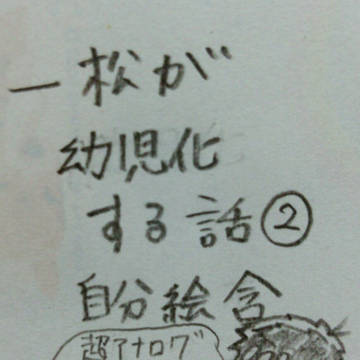 一松が
幼児化
する話②
自分絵含
超アナログ